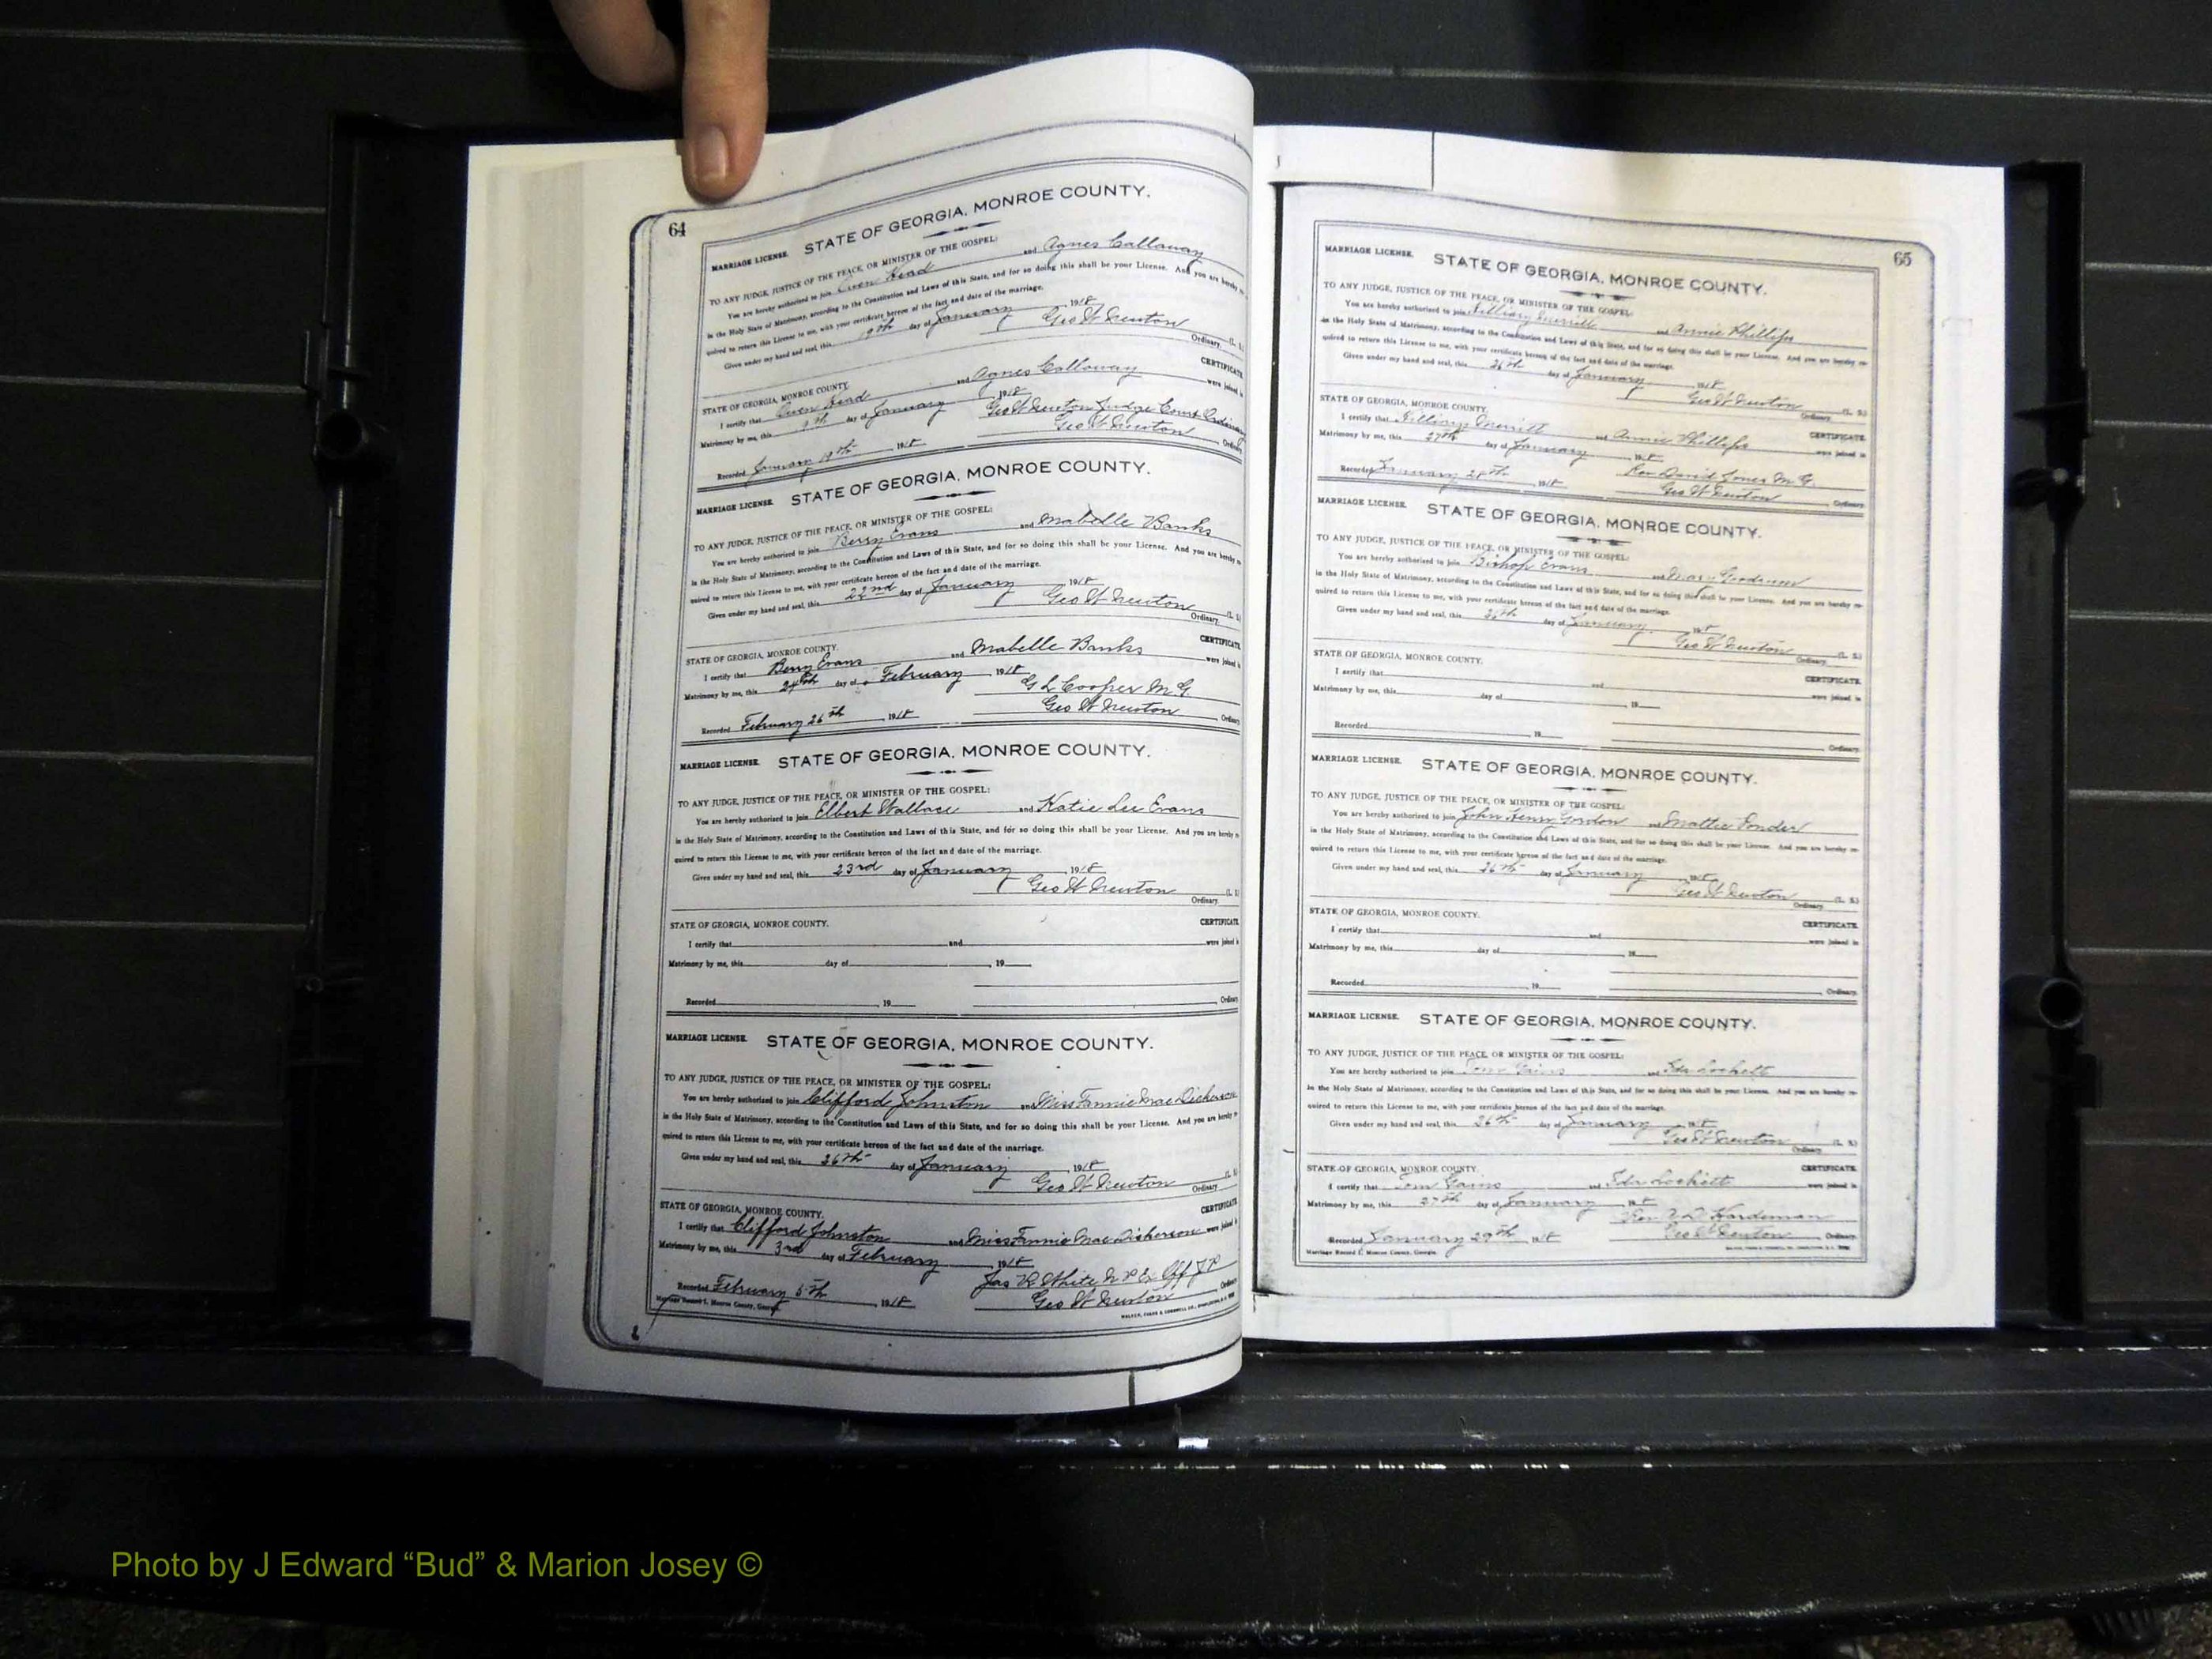 64
MARRIAGE LICENSE. STATE OF GEORGIA, MONROE COUNTY.
TO ANY JUDGE, JUSTICE OF THE PEACE, OR MINISTER OF THE GOSPEL:
You are hereby authorized to join Owen Head and Agnes Callaway
in the Holy State of Matrimony, according to the Constitution and Laws of this State, and for so doing this shall be your License. And you are hereby re-
quired to return this License to me, with your certificate hereon of the fact and date of the marriage.
Given under my hand and seal, this 19th day of January 1918
Geo W Newton (L. S.)
Ordinary.
STATE OF GEORGIA, MONROE COUNTY. CERTIFICATE
I certify that Owen Head and Agnes Callaway were joined in
Matrimony by me, this 19th day of January 1918
Geo W Newton Judge Court Ordinary
Recorded January 19th 1918 Geo W Newton Ordinary
MARRIAGE LICENSE. STATE OF GEORGIA, MONROE COUNTY.
TO ANY JUDGE, JUSTICE OF THE PEACE, OR MINISTER OF THE GOSPEL:
You are hereby authorized to join Berry Evans and Mabelle Banks
in the Holy State of Matrimony, according to the Constitution and Laws of this State, and for so doing this shall be your License. And you are hereby re-
quired to return this License to me, with your certificate hereon of the fact and date of the marriage.
Given under my hand and seal, this 22nd day of January 1918
Geo W Newton (L. S.)
Ordinary.
STATE OF GEORGIA, MONROE COUNTY. CERTIFICATE
I certify that Berry Evans and Mabelle Banks were joined in
Matrimony by me, this 24th day of February 1918
G L Cooper M G
Recorded February 26th 1918 Geo W Newton Ordinary
MARRIAGE LICENSE. STATE OF GEORGIA, MONROE COUNTY.
TO ANY JUDGE, JUSTICE OF THE PEACE, OR MINISTER OF THE GOSPEL:
You are hereby authorized to join Elbert Wallace and Katie Lee Evans
in the Holy State of Matrimony, according to the Constitution and Laws of this State, and for so doing this shall be your License. And you are hereby re-
quired to return this License to me, with your certificate hereon of the fact and date of the marriage.
Given under my hand and seal, this 23rd day of January 1918
Geo W Newton (L. S.)
Ordinary.
STATE OF GEORGIA, MONROE COUNTY. CERTIFICATE
I certify that and were joined in
Matrimony by me, this day of , 19
Recorded , 19 Ordinary
MARRIAGE LICENSE. STATE OF GEORGIA, MONROE COUNTY.
TO ANY JUDGE, JUSTICE OF THE PEACE, OR MINISTER OF THE GOSPEL:
You are hereby authorized to join Clifford Johnston and Miss Fannie Mae Dickerson
in the Holy State of Matrimony, according to the Constitution and Laws of this State, and for so doing this shall be your License. And you are hereby re-
quired to return this License to me, with your certificate hereon of the fact and date of the marriage.
Given under my hand and seal, this 26th day of January 1918
Geo W Newton (L. S.)
Ordinary
STATE OF GEORGIA, MONROE COUNTY. CERTIFICATE
I certify that Clifford Johnston and Miss Fannie Mae Dickerson were joined in
Matrimony by me, this 3rd day of February 1918
Jas R White N P Ex Off J P
Recorded February 5th 1918 Geo W Newton Ordinary
Marriage Record I, Monroe County, Georgia
65
MARRIAGE LICENSE. STATE OF GEORGIA, MONROE COUNTY.
TO ANY JUDGE, JUSTICE OF THE PEACE, OR MINISTER OF THE GOSPEL:
You are hereby authorized to join Merritt and Annie Phillips
in the Holy State of Matrimony, according to the Constitution and Laws of this State, and for so doing this shall be your License. And you are hereby re-
quired to return this License to me, with your certificate hereon of the fact and date of the marriage.
Given under my hand and seal, this 26th day of January 1918
Geo W Newton (L. S.)
Ordinary
STATE OF GEORGIA, MONROE COUNTY. CERTIFICATE
I certify that Merritt and Annie Phillips were joined in
Matrimony by me, this 27th day of January 1918
Rev David Jones M. G.
Recorded January 28th 1918 Geo W Newton Ordinary
MARRIAGE LICENSE. STATE OF GEORGIA, MONROE COUNTY.
TO ANY JUDGE, JUSTICE OF THE PEACE, OR MINISTER OF THE GOSPEL:
You are hereby authorized to join Bishop Evans and Mary Goodrum
in the Holy State of Matrimony, according to the Constitution and Laws of this State, and for so doing this shall be your License. And you are hereby re-
quired to return this License to me, with your certificate hereon of the fact and date of the marriage.
Given under my hand and seal, this 26th day of January 1918
Geo W Newton (L. S.)
Ordinary
STATE OF GEORGIA, MONROE COUNTY. CERTIFICATE
I certify that and were joined in
Matrimony by me, this day of 19
Recorded 19 Ordinary
MARRIAGE LICENSE. STATE OF GEORGIA, MONROE COUNTY.
TO ANY JUDGE, JUSTICE OF THE PEACE, OR MINISTER OF THE GOSPEL:
You are hereby authorized to join John Henry Gordon and Mattie Ponder
in the Holy State of Matrimony, according to the Constitution and Laws of this State, and for so doing this shall be your License. And you are hereby re-
quired to return this License to me, with your certificate hereon of the fact and date of the marriage.
Given under my hand and seal, this 26th day of January 1918
Geo W Newton (L. S.)
Ordinary.
STATE OF GEORGIA, MONROE COUNTY. CERTIFICATE
I certify that and were joined in
Matrimony by me, this day of 19
Recorded 19 Ordinary
MARRIAGE LICENSE. STATE OF GEORGIA, MONROE COUNTY.
TO ANY JUDGE, JUSTICE OF THE PEACE, OR MINISTER OF THE GOSPEL:
You are hereby authorized to join Tom Gains and Eda Lockett
in the Holy State of Matrimony, according to the Constitution and Laws of this State, and for so doing this shall be your License. And you are hereby re-
quired to return this License to me, with your certificate hereon of the fact and date of the marriage.
Given under my hand and seal, this 26th day of January 1918
Geo W Newton (L. S.)
Ordinary.
STATE OF GEORGIA, MONROE COUNTY. CERTIFICATE
I certify that Tom Gains and Eda Lockett were joined in
Matrimony by me, this 27th day of January 1918
Rev Hardeman
Recorded January 29th 1918 Geo W Newton Ordinary
Marriage Record I, Monroe County, Georgia.
Photo by J Edward “Bud” & Marion Josey ©